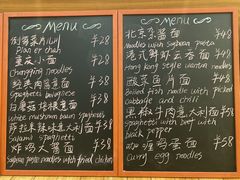 Menu
¥28
Pian er chuan
重庆小面 ¥28
Chongqing noodles
经典肉酱意面 ¥38
Spaghetti bolognese
白蘑菇培根意面 ¥38
white mushroom bacon spaghetti
萨拉米辣味意大利面 ¥48
Salami and spaghetti
炸鸡大酱面 ¥58
Soybean paste noodles with fried chicken
Menu
北京杂酱面 ¥38
Noodles with soybean paste
港式鲜虾云吞面 ¥58
Hong Kong style wonton noodles
酸菜鱼片面 ¥58
Boiled fish noodle with picked
cabbage and chili
黑椒牛肉意大利面 ¥58
Spaghetti with beef with
black pepper
咖喱鸡蛋面 ¥38
Curry egg noodles